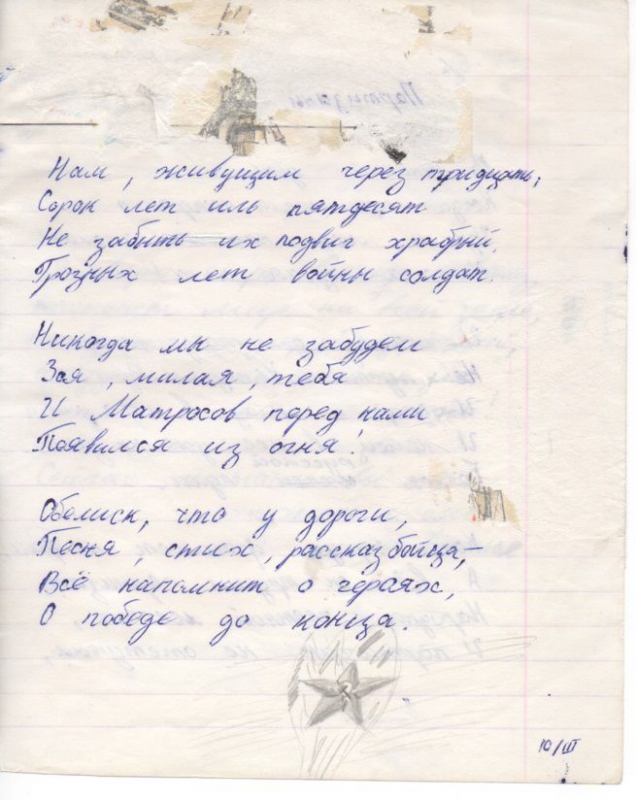 Нам, живущим через тридцать,
Сорок лет иль пятдесят
Не забыть их подвиг храбрый,
Грозных лет войны солдат.
Никогда мы не забудем
Зоя, милая, тебя
И Матросов перед нами
Появился из огня!
Обелиск, что у дороги,
Песня, стих, рассказ бойца, –
Всё напомнит о героях,
О победе до конца.
10/III